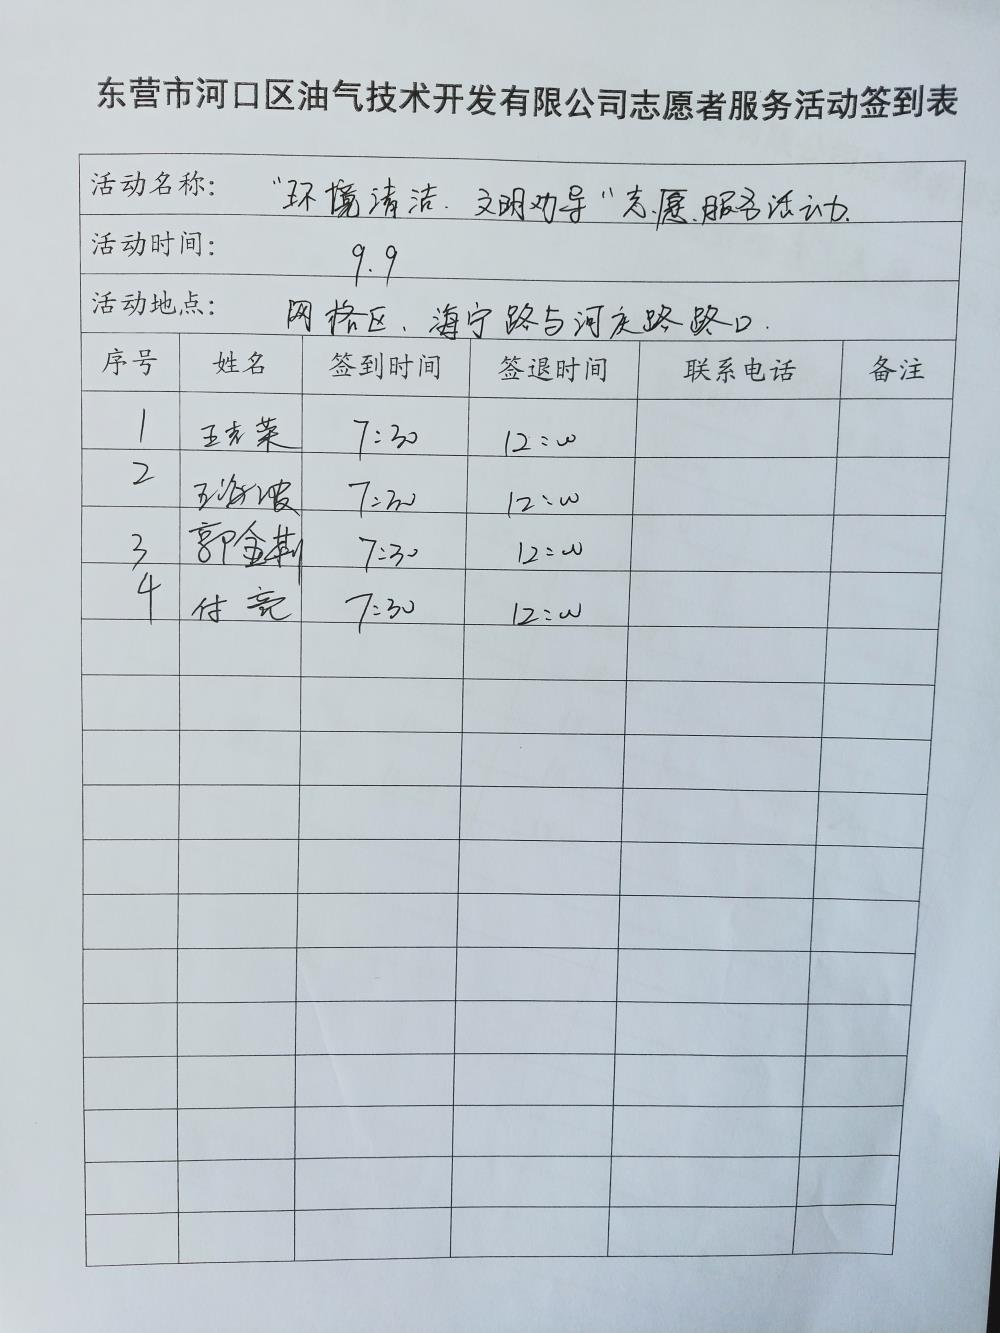 东营市河口区油气技术开发有限公司志愿者服务活动签到表
活动名称： “环境清洁、文明劝导”志愿服务活动.
活动时间： 9.9
活动地点： 网格区、海宁路与河庆路路口.
序号 姓名 签到时间 签退时间 联系电话 备注
1 王克荣 7:30 12:00
2 王海波 7:30 12:00
3 郭金荆 7:30 12:00
4 付亮 7:30 12:00